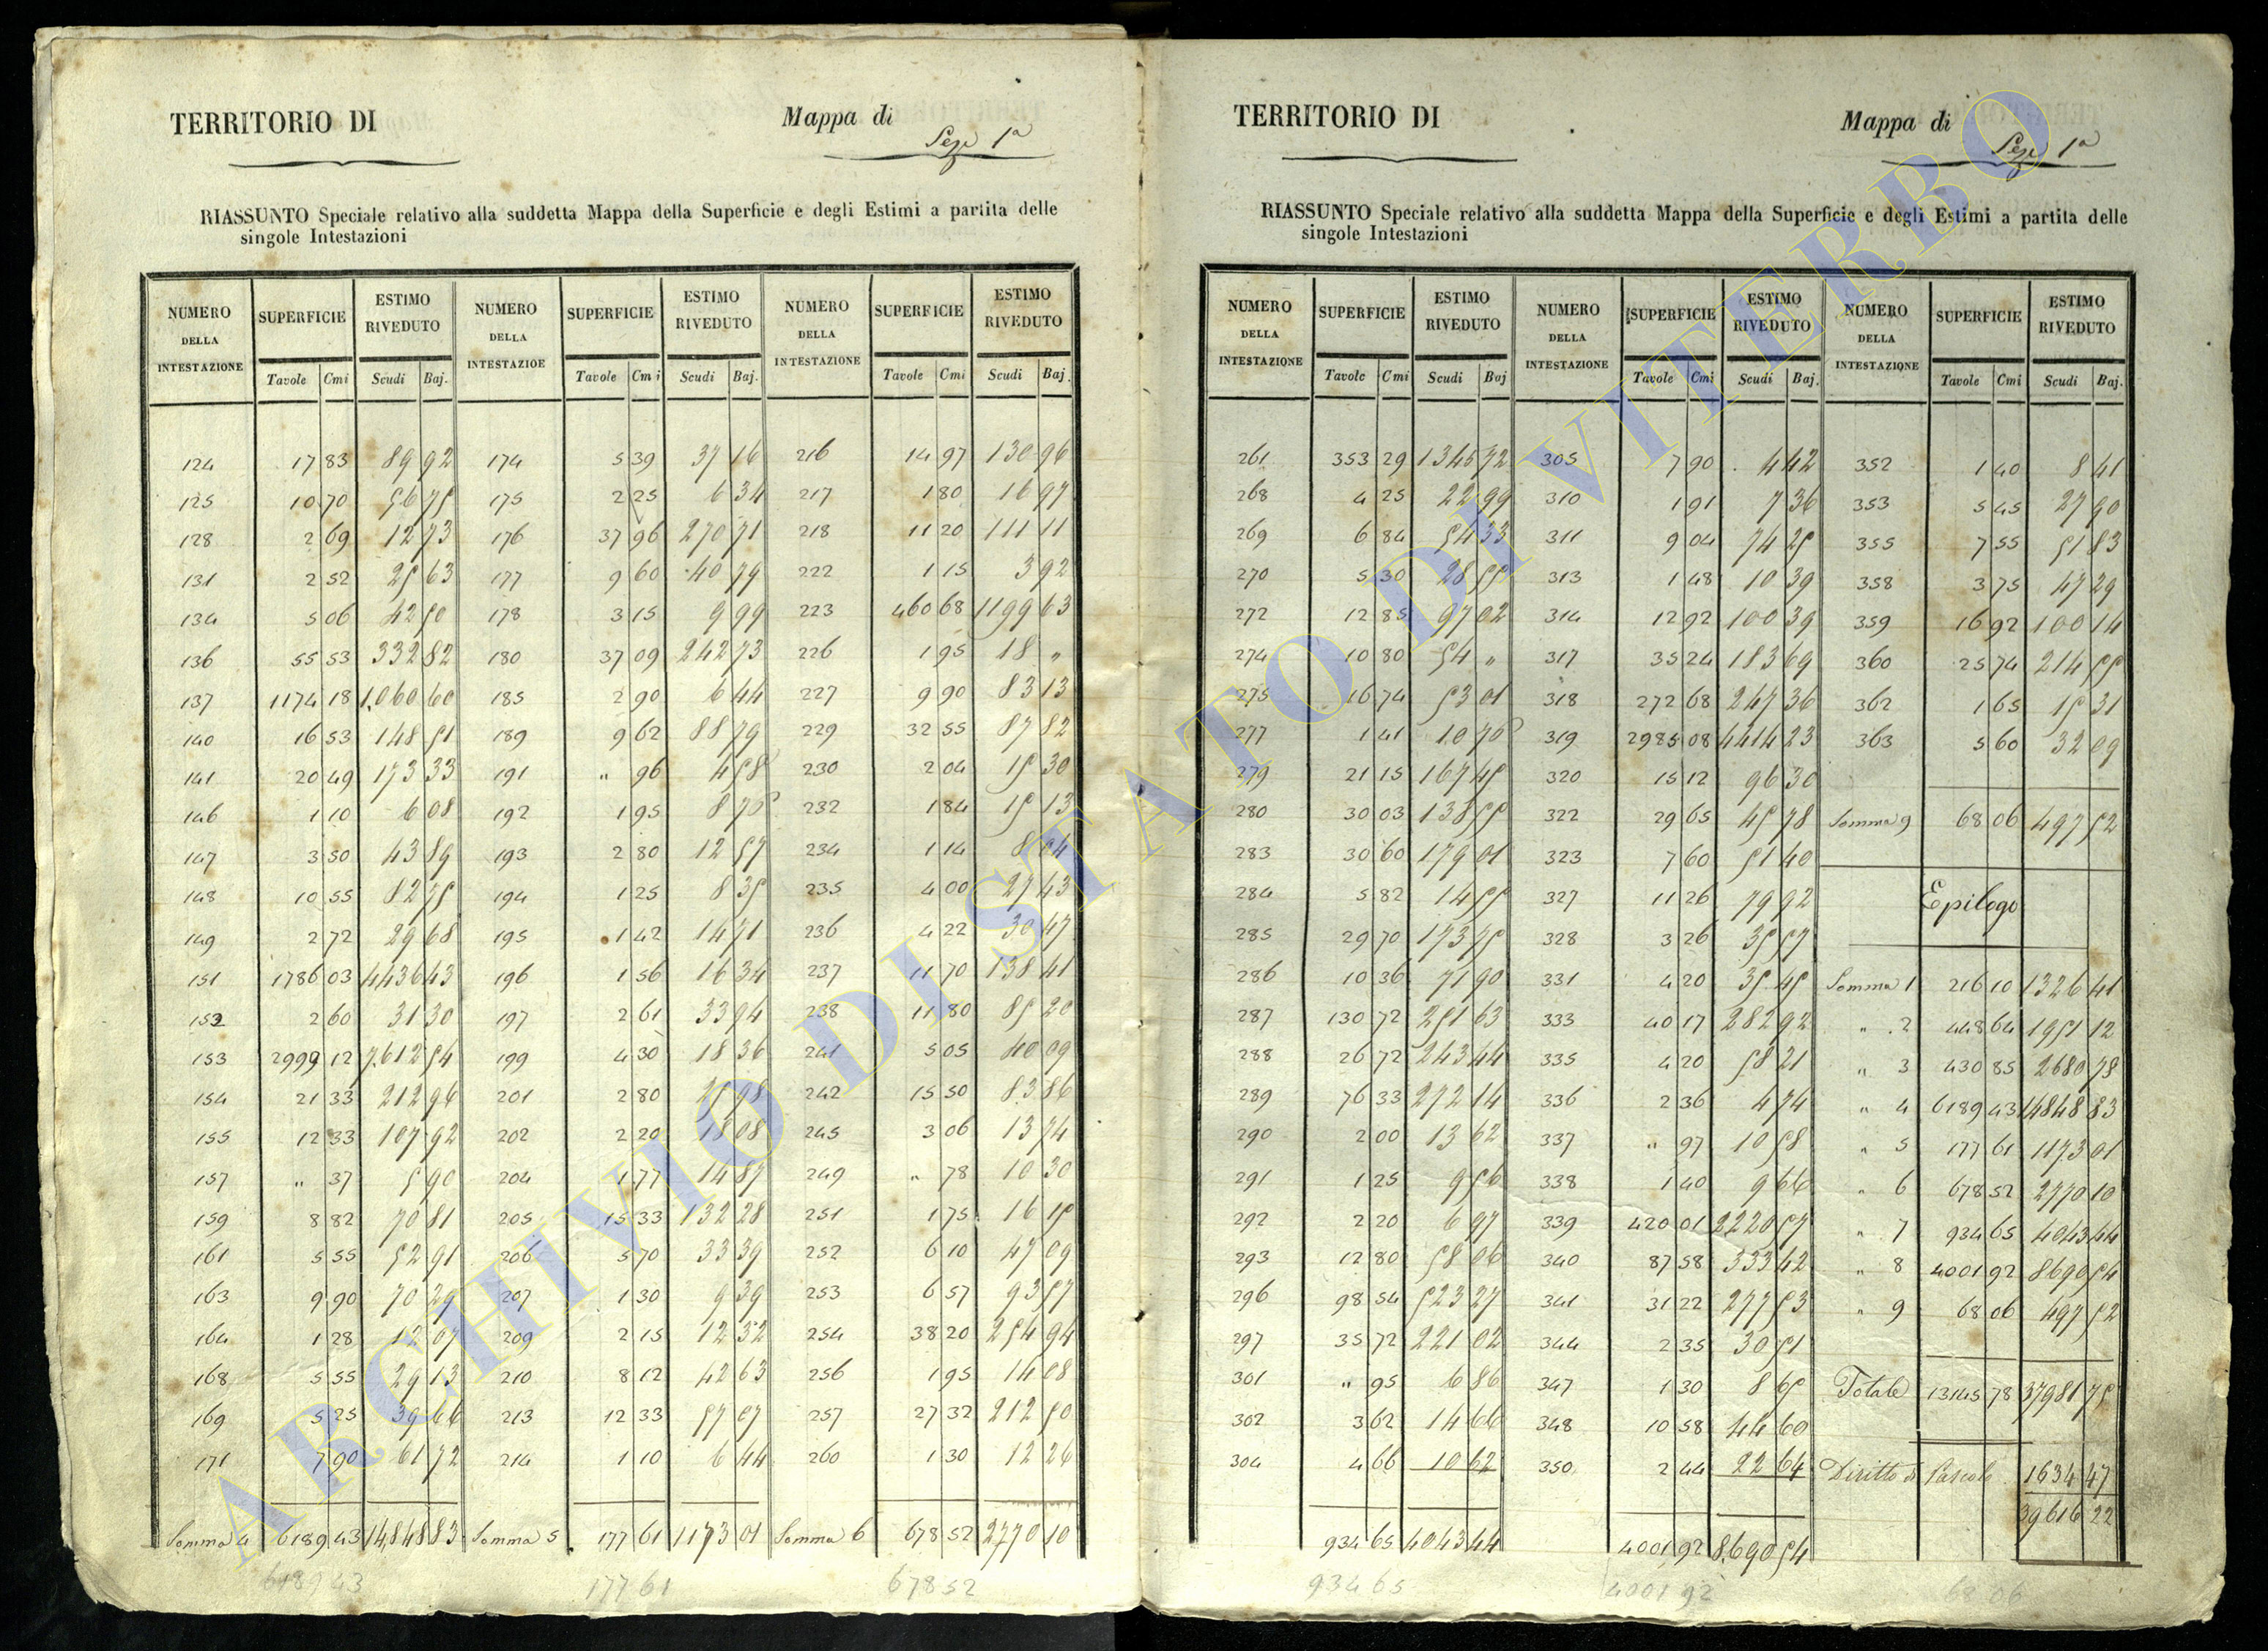 TERRITORIO DI
Mappa di
Sezne 1a
RIASSUNTO Speciale relativo alla suddetta Mappa della Superficie e degli Estimi a partita delle
singole Intestazioni
NUMERO DELLA INTESTAZIONE SUPERFICIE ESTIMO RIVEDUTO NUMERO DELLA INTESTAZIOE SUPERFICIE ESTIMO RIVEDUTO NUMERO DELLA INTESTAZIONE SUPERFICIE ESTIMO RIVEDUTO
Tavole Cmi Scudi Baj. Tavole Cmi Scudi Baj. Tavole Cmi Scudi Baj.
124 17 83 89 92 174 5 39 37 16 216 14 97 130 96
125 10 70 56 75 175 2 25 6 34 217 1 80 16 97
128 2 69 12 73 176 37 96 270 71 218 11 20 111 11
131 2 52 25 63 177 9 60 40 79 222 1 15 3 92
134 5 06 42 50 178 3 15 9 99 223 460 68 1199 63
136 55 53 332 82 180 37 09 242 73 226 1 95 18 "
137 1174 18 1,060 60 185 2 90 6 44 227 9 90 83 13
140 16 53 148 51 189 9 62 88 79 229 32 55 87 82
141 20 49 173 33 191 " 96 4 58 230 2 04 15 30
146 1 10 6 08 192 1 95 8 75 232 1 84 15 13
147 3 50 43 89 193 2 80 12 57 234 1 14 8 04
148 10 55 82 75 194 1 25 8 35 235 4 00 27 43
149 2 72 29 68 195 1 42 14 71 236 4 22 30 47
151 1786 03 4436 43 196 1 56 16 34 237 11 70 138 41
152 2 60 31 30 197 2 61 33 94 238 11 80 85 20
153 2999 12 7,612 54 199 4 30 18 36 241 5 05 40 09
154 21 33 212 96 201 2 80 25 98 242 15 50 83 86
155 12 33 107 92 202 2 20 18 08 245 3 06 13 74
157 " 37 5 90 204 1 77 14 87 249 " 78 10 30
159 8 82 70 81 205 15 33 132 28 251 1 75 16 15
161 5 55 52 91 206 5 70 33 39 252 6 10 47 09
163 9 90 70 29 207 1 30 9 39 253 6 57 93 57
164 1 28 12 07 209 2 15 12 52 254 38 20 254 94
168 5 55 29 13 210 8 12 42 63 256 1 95 14 08
169 5 25 39 66 213 12 33 57 07 257 27 32 212 50
171 7 90 61 72 214 1 10 6 44 260 1 30 12 26
Somma 4 6189 43 14,848 83 Somma 5 177 61 1173 01 Somma 6 678 52 2770 10
6189 43 177 61 678 52
TERRITORIO DI
Mappa di
Sezne 1a
RIASSUNTO Speciale relativo alla suddetta Mappa della Superficie e degli Estimi a partita delle
singole Intestazioni
NUMERO DELLA INTESTAZIONE SUPERFICIE ESTIMO RIVEDUTO NUMERO DELLA INTESTAZIONE SUPERFICIE ESTIMO RIVEDUTO NUMERO DELLA INTESTAZIONE SUPERFICIE ESTIMO RIVEDUTO
Tavole Cmi Scudi Baj Tavole Cmi Scudi Baj. Tavole Cmi Scudi Baj.
261 353 29 1346 72 305 7 90 4 42 352 1 40 8 41
268 4 25 22 99 310 1 91 7 36 353 5 45 27 90
269 6 84 54 33 311 9 04 74 25 355 7 55 51 83
270 5 30 28 55 313 1 48 10 39 358 3 75 47 29
272 12 85 97 02 314 12 92 100 39 359 16 92 100 14
274 10 80 54 " 317 35 24 183 69 360 25 74 214 55
275 16 74 53 01 318 272 68 247 36 362 1 65 15 31
277 1 41 10 75 319 2985 08 4414 23 363 5 60 32 09
279 21 15 167 45 320 15 12 96 30
280 30 03 138 55 322 29 65 45 78 Somma 9 68 06 497 52
283 30 60 179 01 323 7 60 51 40
284 5 82 14 55 327 11 26 79 92 Epilogo
285 29 70 173 75 328 3 26 35 57
286 10 36 71 90 331 4 20 35 45 Somma 1 216 10 1326 41
287 130 72 251 63 333 40 17 282 92 " 2 448 64 1951 12
288 26 72 243 44 335 4 20 58 21 " 3 430 85 2680 78
289 76 33 272 14 336 2 36 4 74 " 4 6189 43 14848 83
290 2 00 13 62 337 " 97 10 58 " 5 177 61 1173 01
291 1 25 9 56 338 1 40 9 66 " 6 678 52 2770 10
292 2 20 6 97 339 420 01 2220 57 " 7 934 65 4043 44
293 12 80 58 06 340 87 58 333 42 " 8 4001 92 8690 54
296 98 54 523 27 341 31 22 277 53 " 9 68 06 497 52
297 35 72 221 02 344 2 35 30 51
301 " 95 6 86 347 1 30 8 65 Totale 13145 78 37981 75
302 3 62 14 66 348 10 58 44 60
304 4 66 10 62 350 2 44 22 64 Diritto di Pascolo 1634 47
39616 22
934 65 4043 44 4001 92 8,690 54
934 65 4001 92 68 06
ARCHIVIO DI STATO DI VITERBO